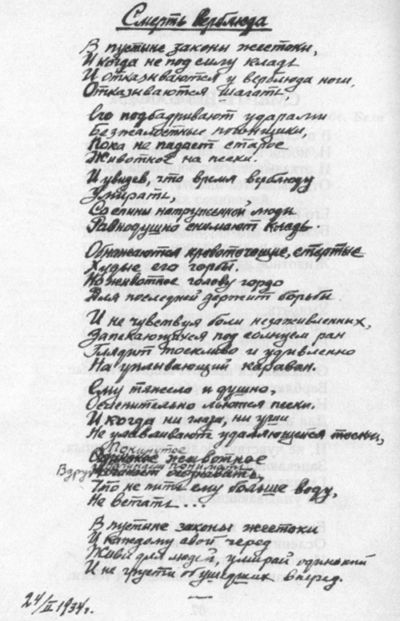 Смерть верблюда
В пустыне законы жестоки,
И когда не под силу кладь
И отказываются у верблюда ноги,
Отказываются шагать
Его подбадривают ударами
Безжалостные погонщики,
Пока не падает старое
Животное на пески.
И увидев, что время верблюду
Умирать,
С спины натруженной люди
Равнодушно снимают кладь.
Обнажаются кровоточащие, стертые
Худые его горбы.
Но животное голову гордо
Для последней держит борьбы
И не чувствуя боли незаживленных,
Запекающихся под солнцем ран
Глядит тоскливо и удивленно
На уплывающий караван.
Ему тяжело и душно,
Ослепительно льются пески.
И когда ни глаза, ни уши
Не улавливают удаляющейся
Покинутое
животное
Вдруг начинает понимать
Что не пить ему больше воду,
Не встать ...
В пустыне законы жестоки
И каждому свой черед
Живи для людей, умирай одинокий
И не грусти об ушедших вперед.
24/II 1934г.